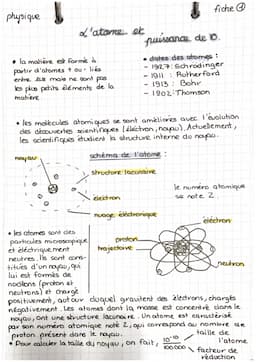 physique
fiche ①
L'atome et puissance de 10.
• la matière est formé à partir d'atomes + ou - liés entre eux mais ne sont pas les plus petits éléments de la matière
• dates des atomes :
- 1927 : Schrödinger
- 1911 : Rutherford
- 1913 : Bohr
- 1902 : Thomson
• les modèles atomiques se sont améliorés avec l'évolution
des découvertes scientifiques (électron, noyau). Actuellement,
les scientifiques étudient la structure interne du noyau.
schéma de l'atome :
noyau
structure lacunaire
électron
nuage électronique
le numéro atomique
se note Z.
électron
proton
trajectoire
neutron
• les atomes sont des
particules microscopique
et électriquement
neutres. Ils sont cons-
titués d'un noyau, qui
lui est formés de
nucléons (proton et
neutrons) et chargé
positivement, autour duquel gravitent des électrons, chargés
négativement. Les atomes dont la masse est concentré dans le
noyau, ont une structure lacunaire. Un atome est caractérisé
par son numéro atomique noté Z, qui correspond au nombre de
proton présent dans le noyau.
• Pour calculer la taille du noyau, on fait, 10⁻¹⁰ / 100 000
taille de l'atome
facteur de réduction